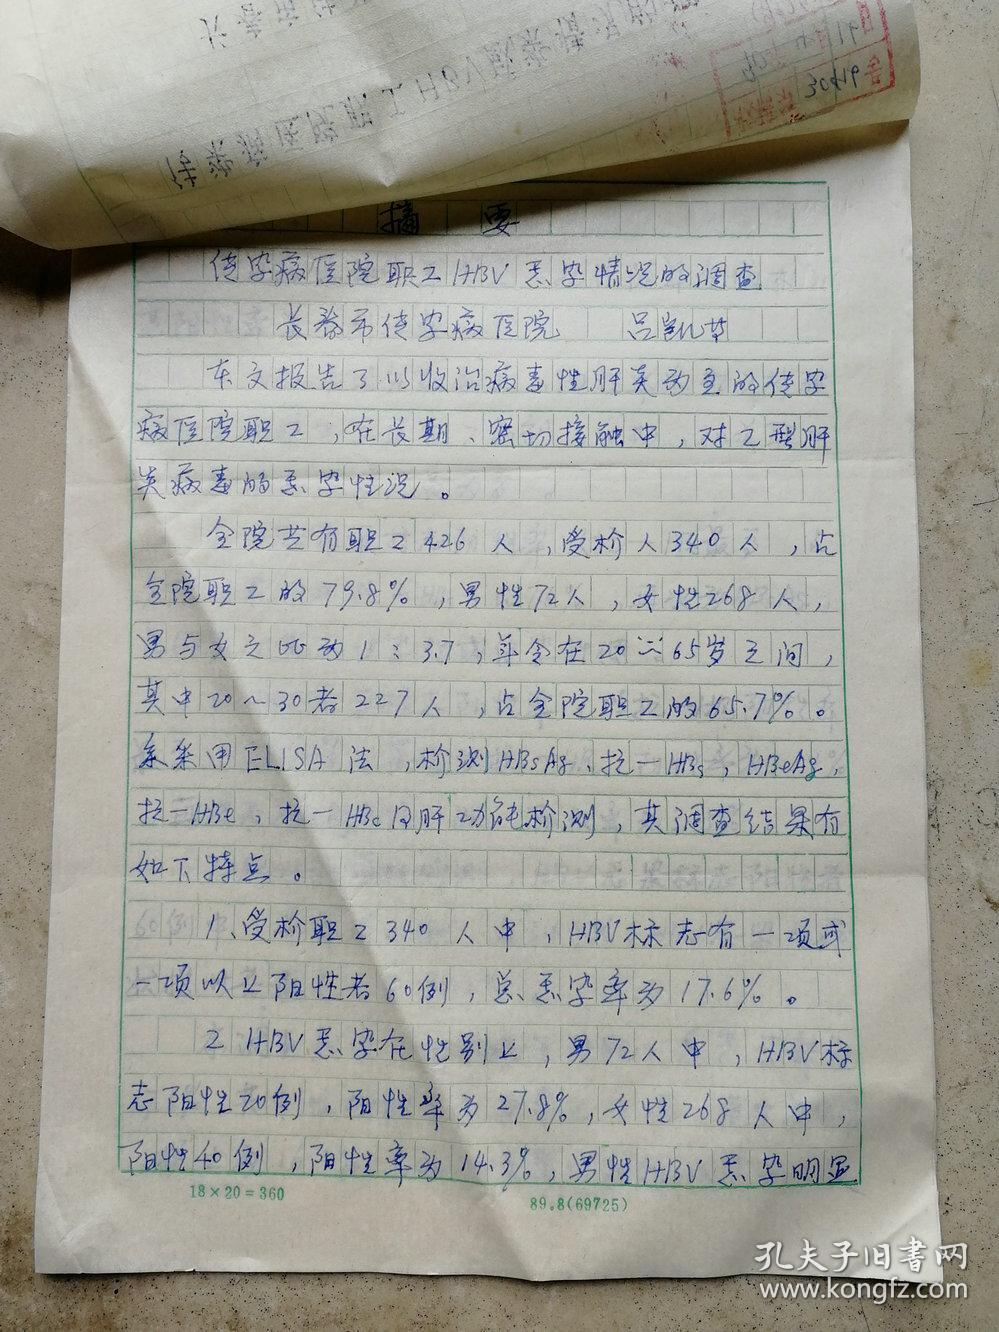 摘 要
传染病医院职工HBV感染情况的调查
长春市传染病医院 吕
本文报告了以收治病毒性肝炎为主的传染
病医院职工,在长期、密切接触中,对乙型肝
炎病毒的感染性况。
全院共有职工426人,受检人340人,占
全院职工的79.8%,男性72人,女性268人,
男与女之比为1:3.7,年令在20~65岁之间,
其中20~30者227人,占全院职工的65.7%。
系采用ELISA法,检测HBsAg、抗-HBs,HBeAg,
抗-HBe,抗-HBc及肝功能检测,其调查结果有
如下特点。
1、受检职工340人中,HBV标志有一项或
一项以上阳性者60例,总感染率为17.6%。
2 HBV感染在性别上,男72人中,HBV标
志阳性20例,阳性率为27.8%,女性268人中,
阳性40例,阳性率为14.3%,男性HBV感染明显
18×20=360
89.8(69725)
孔夫子旧书网
www.kongfz.com